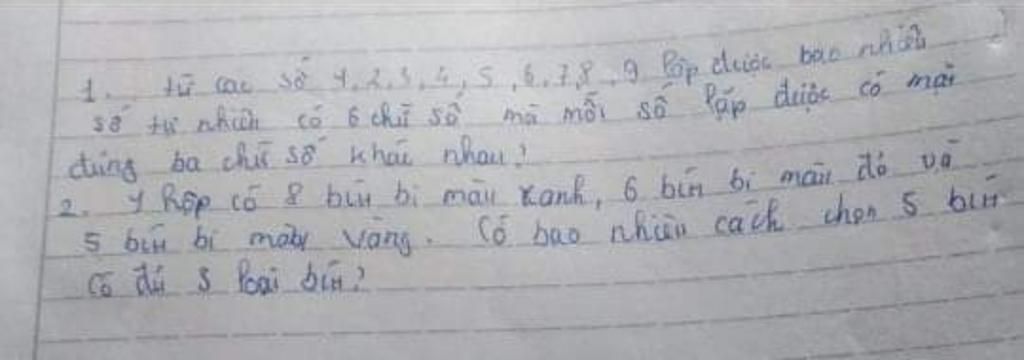 1. từ các số 1, 2, 3, 4, 5, 6, 7, 8, 9 lập được bao nhiêu
số tự nhiên có 6 chữ số mà mỗi số lập được có mặt
đúng ba chữ số khác nhau?
2. 1 hộp có 8 bin bi màu xanh, 6 bin bi màu đỏ và
5 bin bi màu vàng. Có bao nhiêu cách chọn 5 bin
có đủ 3 loại bin?